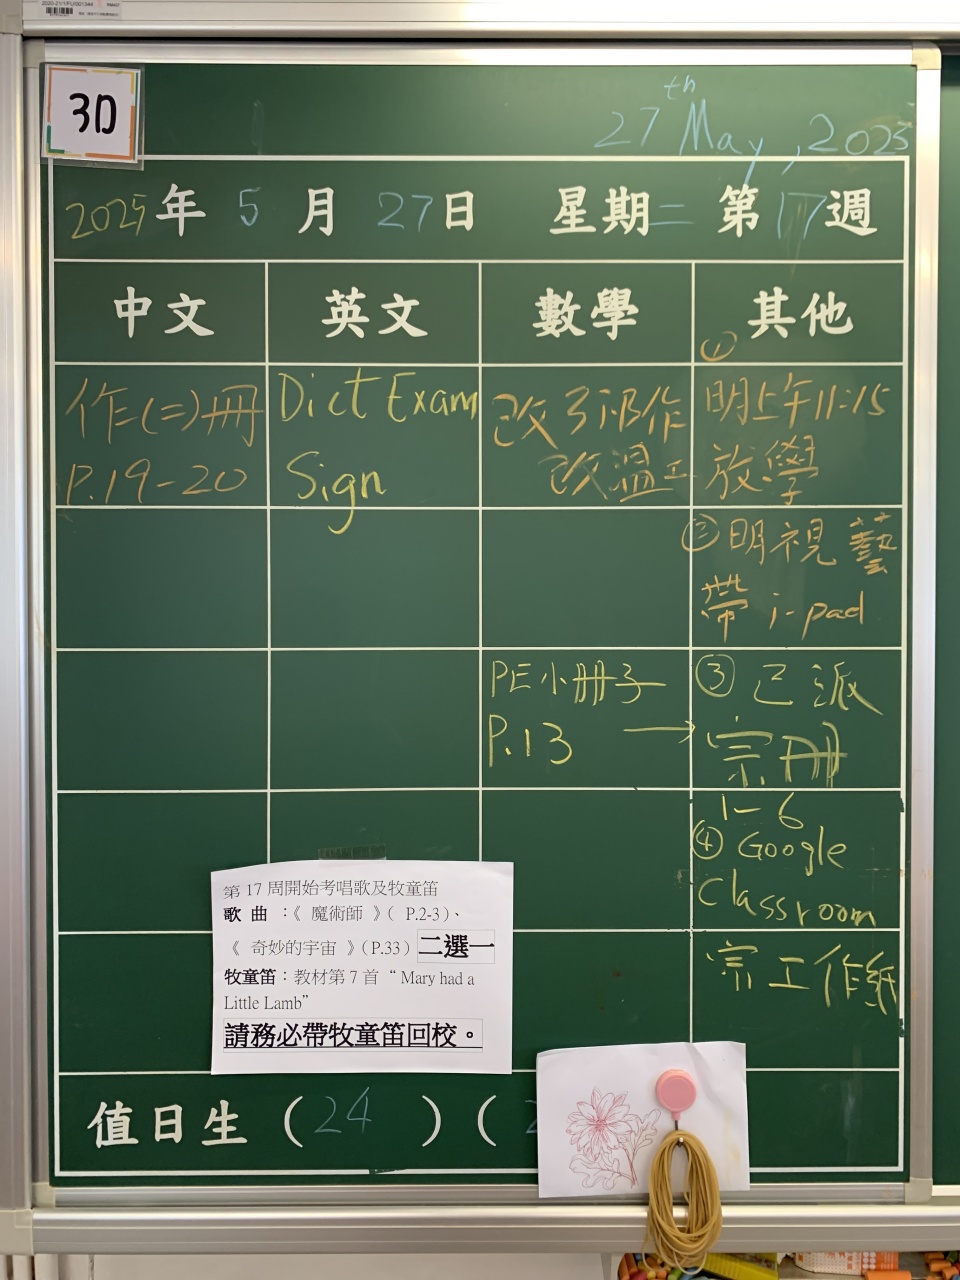 3D
27th May, 2025
2025年 5 月 27日 星期二 第17週
中文 英文 數學 其他
作(二)冊
P.19-20
Dict Exam
Sign
改
作
改溫工
①
明上午11:15
放學
②明視藝
帶 i-pad
PE小冊子
P.13 →
③ 已派
宗冊
1-6
④ Google
Classroom
宗工作紙
第 17 周開始考唱歌及牧童笛
歌 曲 ：《 魔術師 》( P.2-3)、
《 奇妙的宇宙 》(P.33) 二選一
牧童笛：教材第 7 首 “ Mary had a
Little Lamb”
請務必帶牧童笛回校。
值日生 (24 ) (